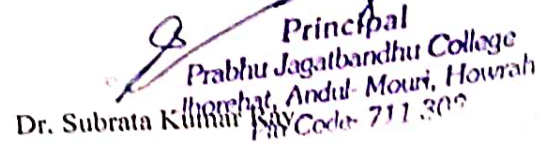 Principal
Prabhu Jagatbandhu College
Jhorehat, Andul-Mouri, Howrah
Pin Code- 711 302
Dr. Subrata Kumar Ray